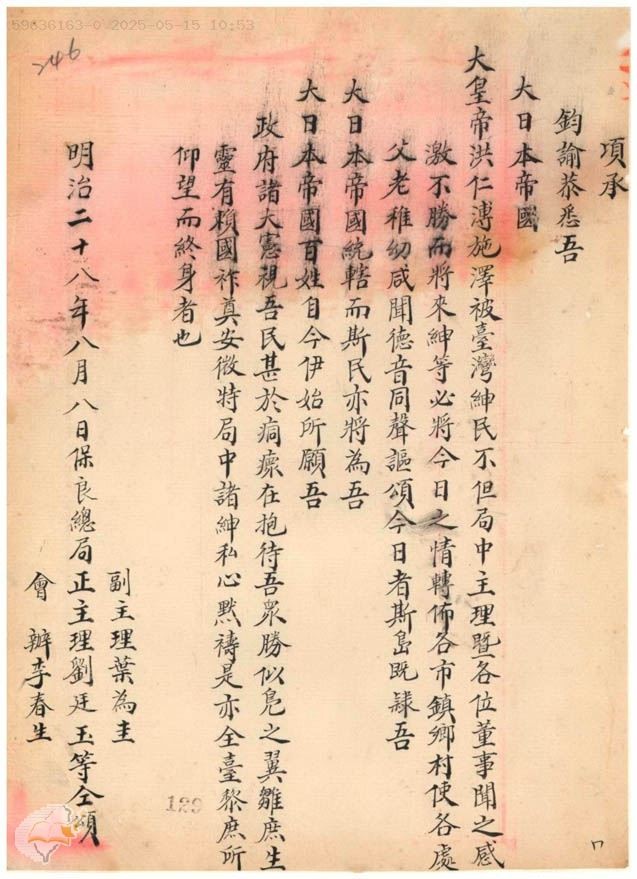 59636163-0 2025-05-15 10:53
246
項承
鈞諭恭悉吾
大日本帝國
大皇帝洪仁溥施澤被臺灣紳民不但局中主理暨各位董事聞之感
激不勝而將來紳等必將今日之情轉佈各市鎮鄉村使各處
父老稚幼咸聞德音同聲謳頌今日者斯島既隸吾
大日本帝國統轄而斯民亦將為吾
大日本帝國百姓自今伊始所願吾
政府諸大憲視吾民甚於痌瘝在抱待吾眾勝似鳧之翼雛庶生
靈有賴國祚奠安微特局中諸紳私心默禱是亦全臺黎庶所
仰望而終身者也
明治二十八年八月八日保良總局正主理劉廷玉等仝頌
副主理葉為圭
會辦李春生
129